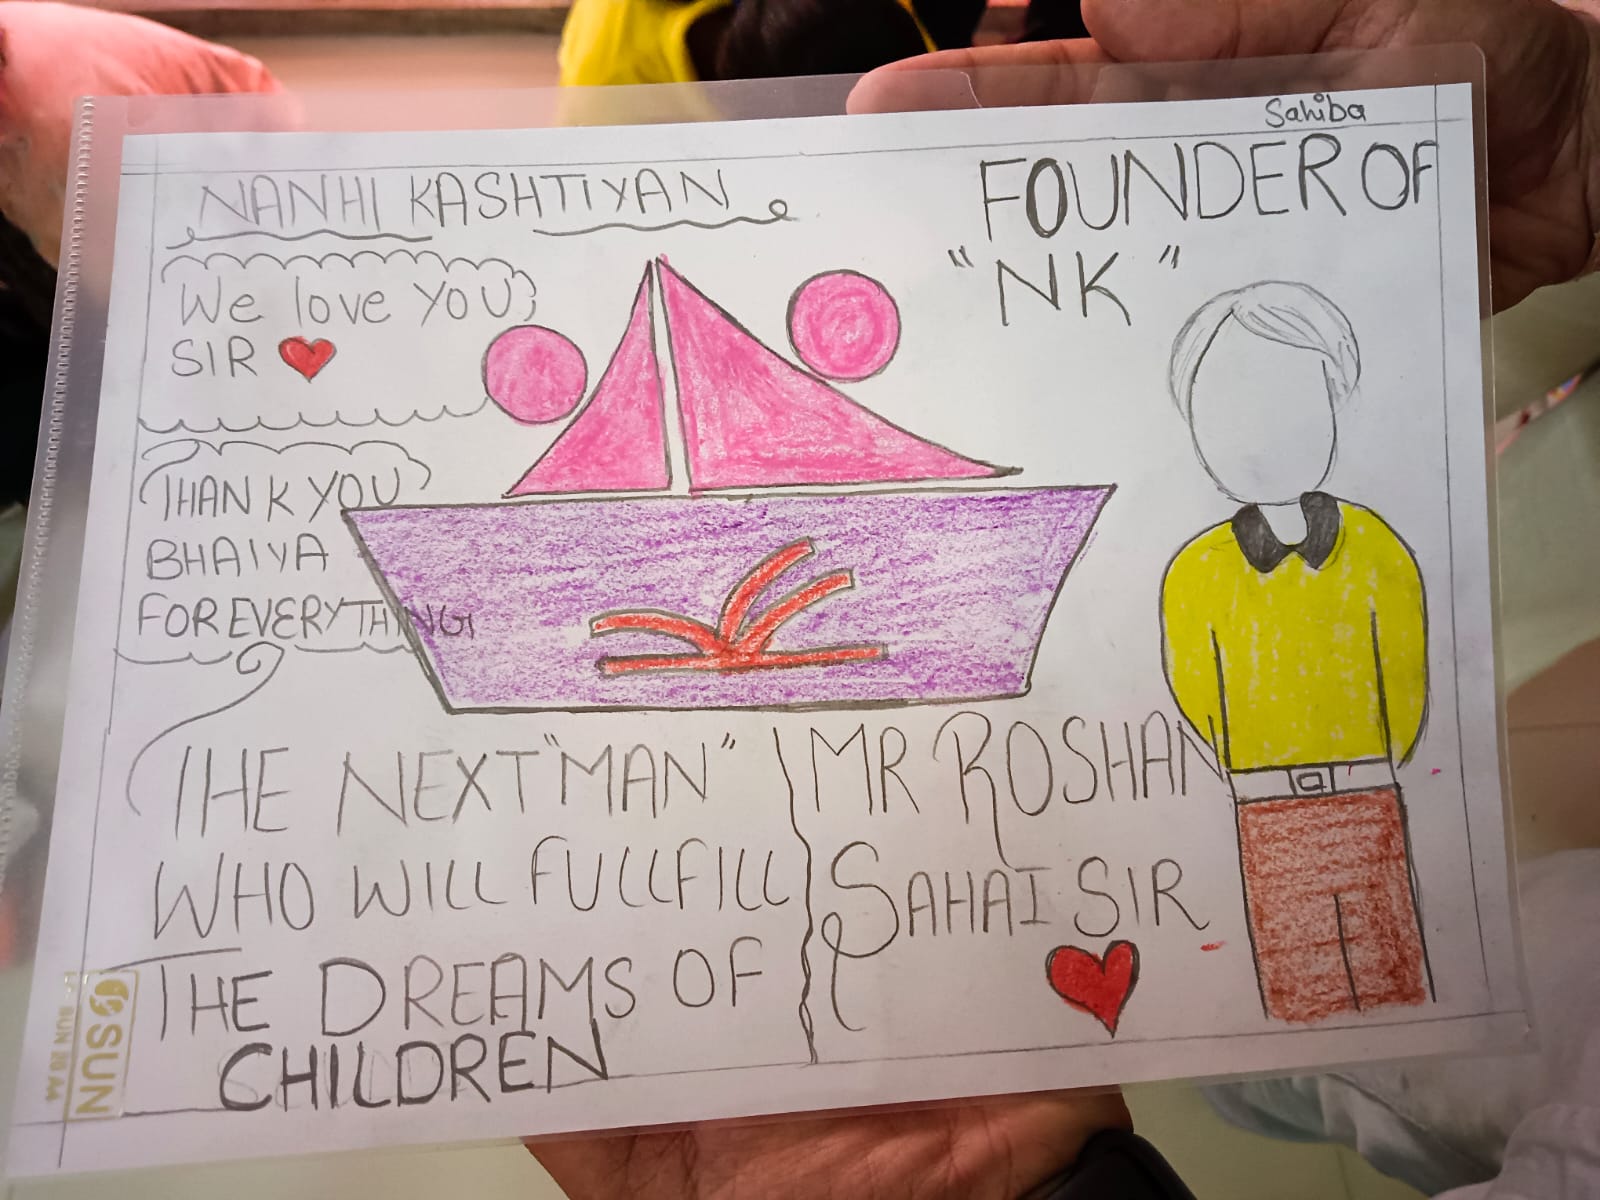 Sahiba
NANHI KASHTIYAN
FOUNDER OF
"NK"
We love YOU
SIR
THANK YOU
BHAIYA
FOR EVERYTHING
THE NEXT "MAN"
WHO WILL FULLFILL
THE DREAMS OF
CHILDREN
MR ROSHAN
SAHAI SIR
SUN